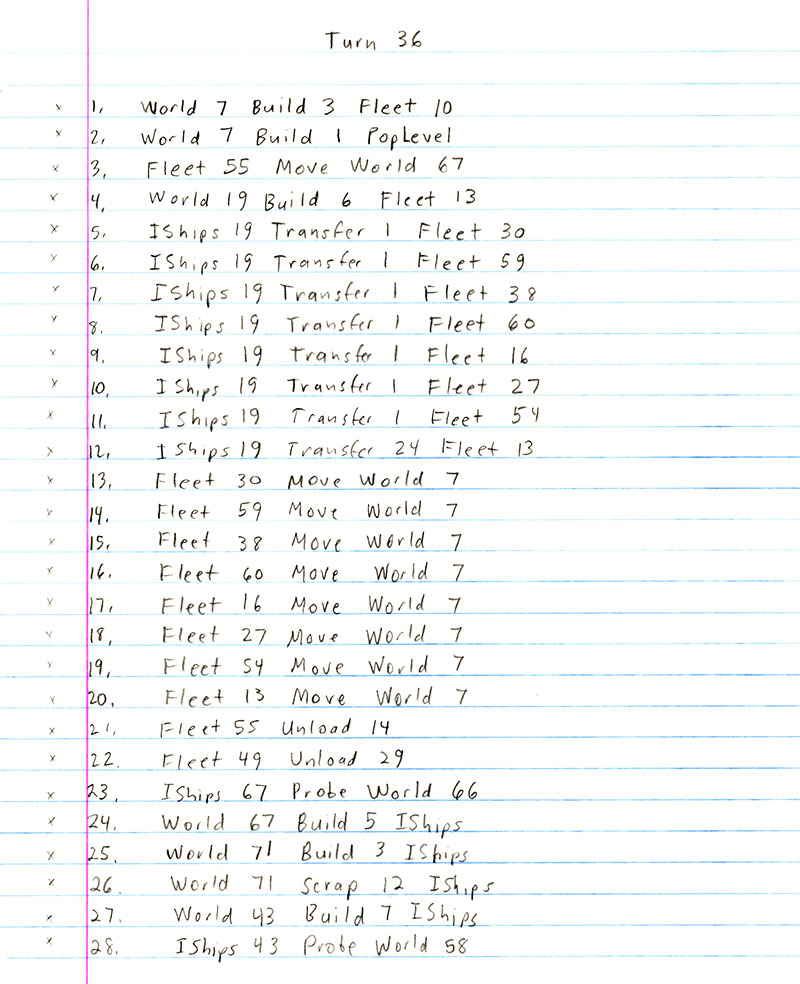 Turn 36
x 1. World 7 Build 3 Fleet 10
x 2. World 7 Build 1 PopLevel
x 3. Fleet 55 Move World 67
x 4. World 19 Build 6 Fleet 13
x 5. IShips 19 Transfer 1 Fleet 30
x 6. IShips 19 Transfer 1 Fleet 59
x 7. IShips 19 Transfer 1 Fleet 38
x 8. IShips 19 Transfer 1 Fleet 60
x 9. IShips 19 Transfer 1 Fleet 16
x 10. IShips 19 Transfer 1 Fleet 27
x 11. IShips 19 Transfer 1 Fleet 54
x 12. IShips 19 Transfer 24 Fleet 13
x 13. Fleet 30 Move World 7
x 14. Fleet 59 Move World 7
x 15. Fleet 38 Move World 7
x 16. Fleet 60 Move World 7
x 17. Fleet 16 Move World 7
x 18. Fleet 27 Move World 7
x 19. Fleet 54 Move World 7
x 20. Fleet 13 Move World 7
x 21. Fleet 55 Unload 14
x 22. Fleet 49 Unload 29
x 23. IShips 67 Probe World 66
x 24. World 67 Build 5 IShips
x 25. World 71 Build 3 IShips
x 26. World 71 Scrap 12 IShips
x 27. World 43 Build 7 IShips
x 28. IShips 43 Probe World 58